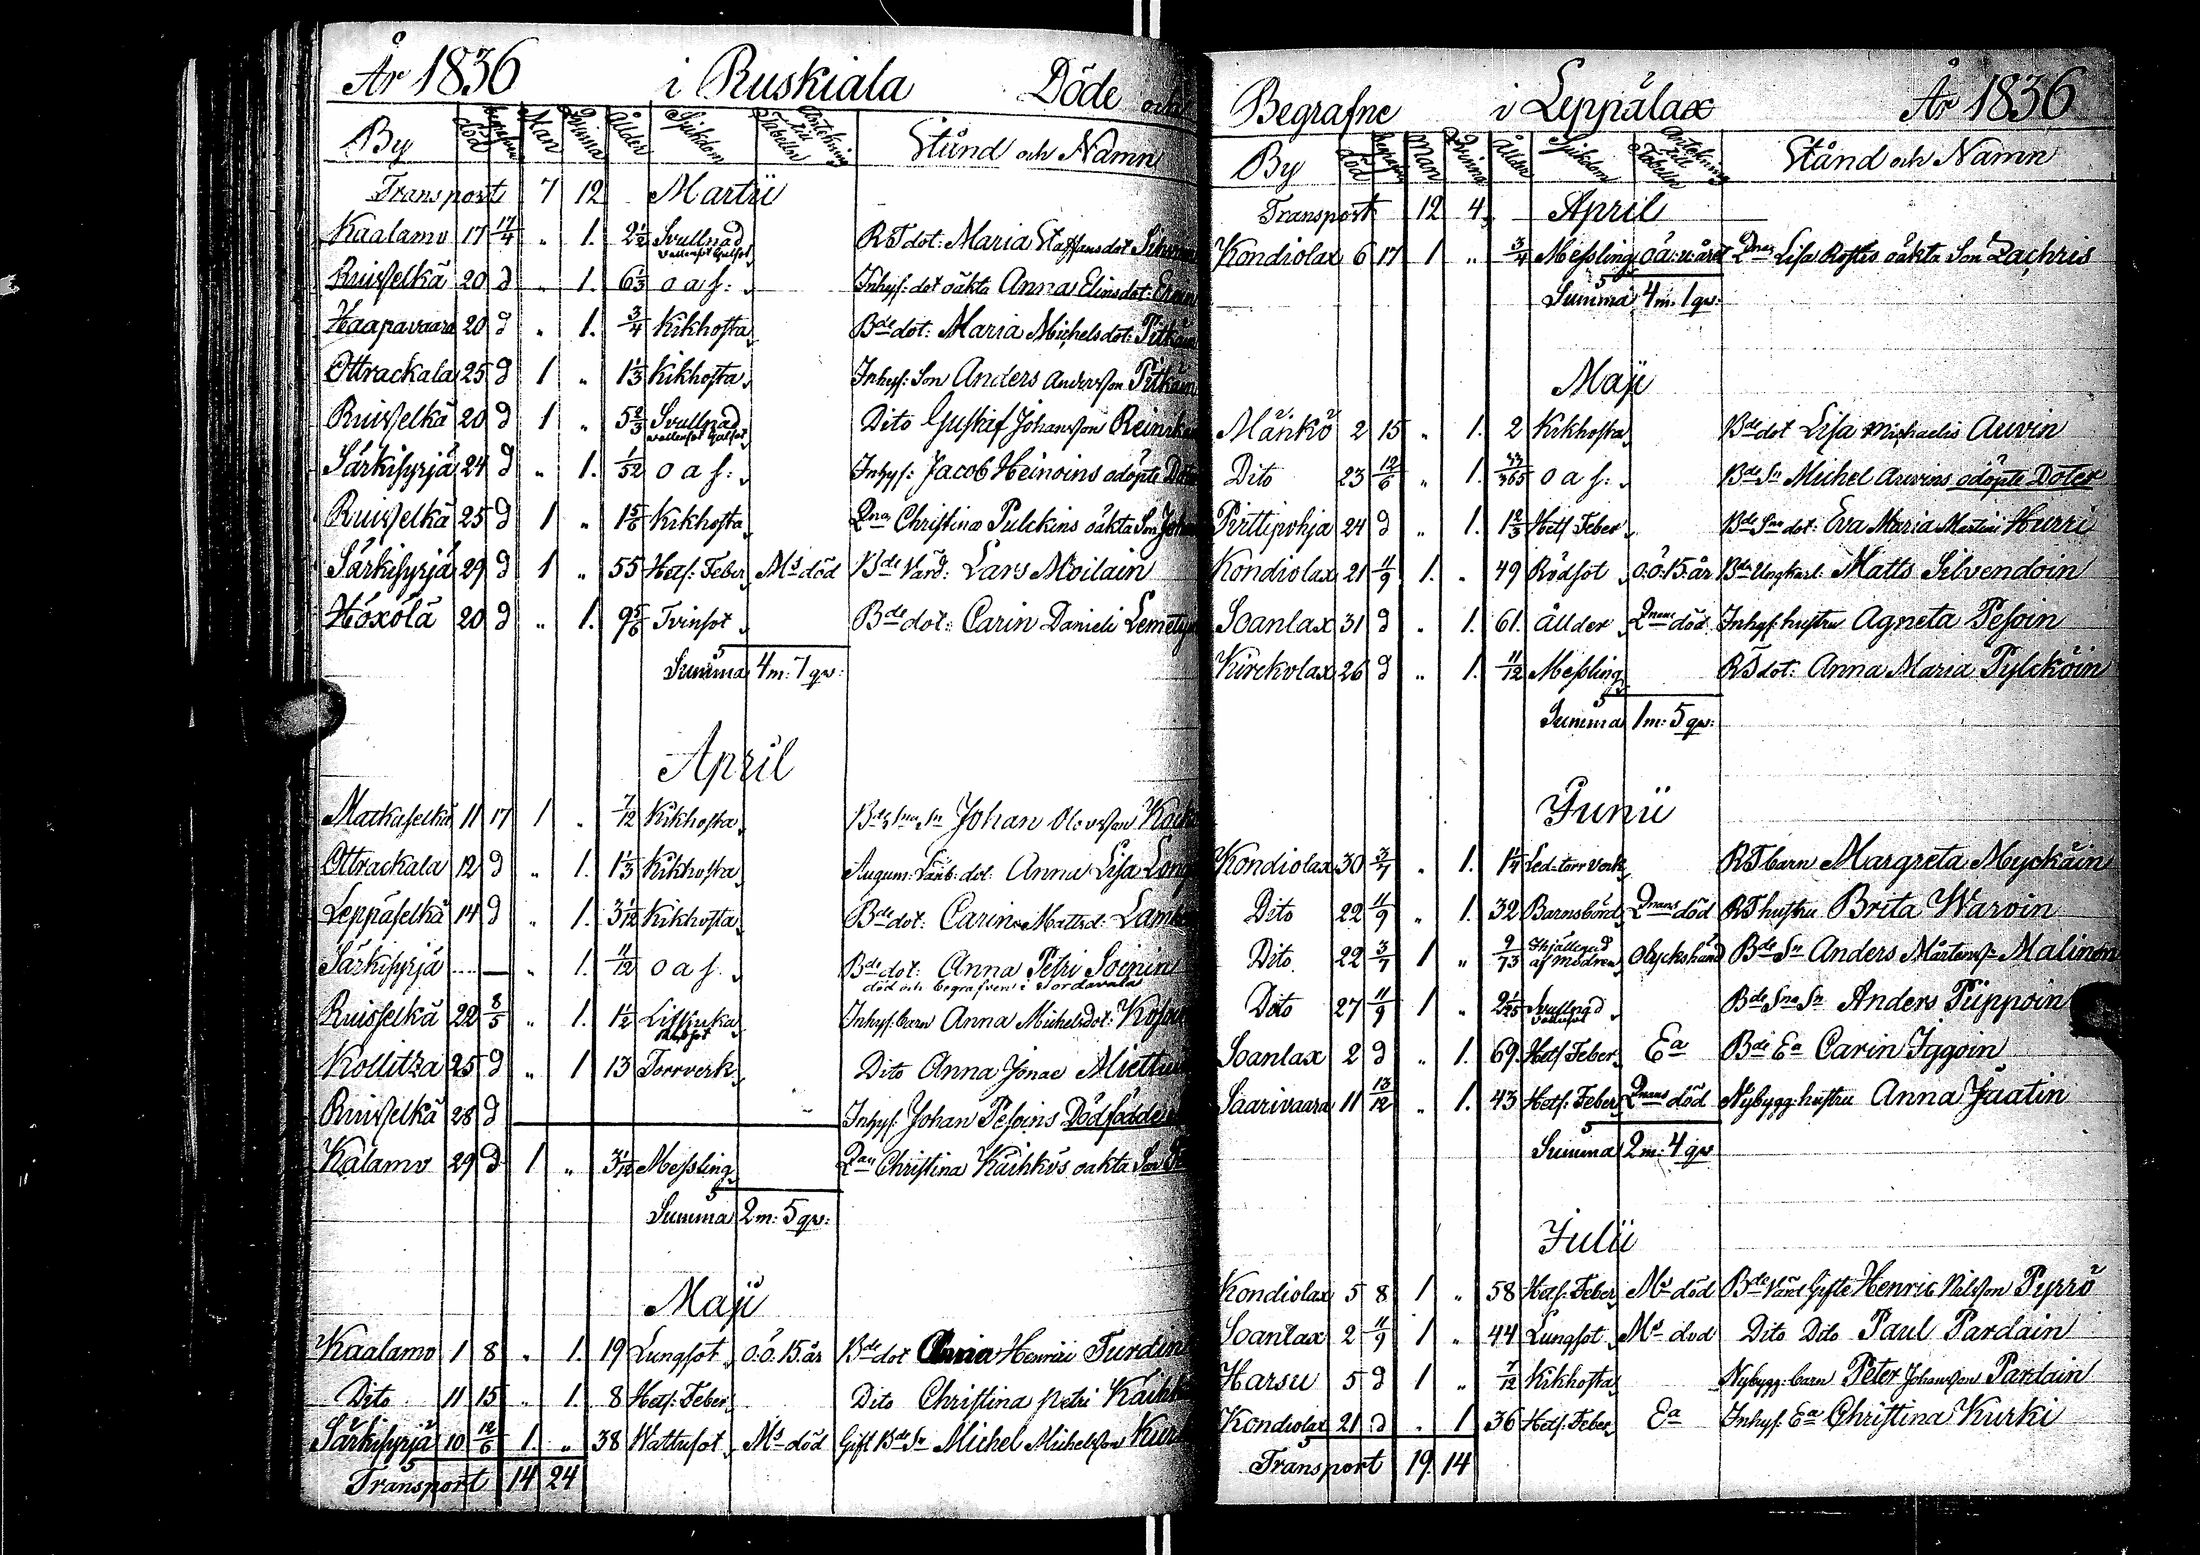 År 1836 i Ruskiala Döde och
By död begrafven Man Qvinna Ålder Sjukdom Antekning till Tabeller Stånd och Namn
Transport 7 12 Martii
Kaalamo 17 17/4 „ 1. 2 1/2 Svullnad RTdot: Maria Staffansdot
Ruisselkä 20 d „ 1. 6/3 o a s: Inhys: dot oäkta Anna Elinsdot:
Haapavaara 20 d „ 1. 3/4 Kikhosta Bde dot: Maria Michelsdot:
Ottrackala 25 d 1 „ 1 1/3 Kikhosta Inhys: Son Anders Andersson
Ruisselkä 20 d 1 „ 5 2/3 Svullnad Dito Gustaf Johansson
Särkisyrjä 24 d „ 1. 1/52 o a s: Inhys: Jacob Heinoins odöpte
Ruisselkä 25 d 1 „ 1 5/6 Kikhosta Qna Christina Pulckins oäkta Son
Särkisyrjä 29 d 1 „ 55 Hets: Feber Ms död Bde Värd: Lars Moilain
Höxölä 20 d „ 1. 9 5/6 Tvinsot Bde dot: Carin Danieli
Summa 4 m: 7 qv:
April
Matkaselkä 11 17 1 „ 7/12 Kikhosta Johan Olovsson
Ottrackala 12 d „ 1. 1 1/3 Kikhosta dot: Anna Lisa
Leppäselkä 14 d „ 1. 3 1/12 Kikhosta Bde dot: Carin Mattsd:
Särkisyrjä .... — „ 1. 11/12 o a s. Bde dot: Anna Petri Soinin
död och begrafven i Sordavala
Ruisselkä 22 8/5 „ 1. 1 1/2 Inhys: barn Anna Michelsdot:
Kollitza 25 d „ 1 13 Torrverk Dito Anna Jonae
Ruisselkä 28 d Inhys: Johan Pesoins Dödfödde
Kalamo 29 d 1 „ 3 1/12 Messling Christina Käihkös oäkta Son
Summa 2 m: 5 qv:
Maji
Kaalamo 1 8 „ 1. 19 Lungsot o: ö: 15. år Bde dot Henrici
Dito 11 15 „ 1. 8 Hets: Feber Dito Christina Petri
Särkisyrjä 10 12/6 1. „ 38 Wattusot Ms död Gift Bde Sn Michel Michelsson
Transport 14 24
Begrafne i Leppälax År 1836
By död begrafven Man Qvinna Ålder Sjukdom Antekning till Tabeller Stånd och Namn
Transport 12 4 April
Kondiolax 6 17 1 „ 3/4 Messling oä: u: året Qnas Lisa oäkta Son Zachris
Summa 4 m. 1 qv:
Maji
Mänkö 2 15 „ 1. 2 Kikhosta Bde dot Lisa Michaelis Auvin
Dito 23 12/6 „ 1. o a s: Bde Sn Michel Auvins odöpte Doter
Pirttipohja 24 d „ 1. 1 2/3 Hets Feber Bde Sns dot: Eva Maria Martini Hurri
Kondiolax 21 11/9 1. „ 49 Rödsot o: ö: 15. år Bde Ungkarl: Matts Silvendoin
Soanlax 31 d „ 1. 61. Ållder död Inhys: hustru Agneta Pesoin
Kirckolax 26 d „ 1. 11/12 Messling RT dot: Anna Maria Pylcköin
Summa 1 m: 5 qv:
Junii
Kondiolax 30 3/7 „ 1. 1 1/4 Led-torrverk RT barn Margreta Myckäin
Dito 22 11/9 „ 1. 32 Barnsbörd död RT hustru Brita Warvin
Dito 22 3/7 1 „ 9/73 Ihjällegad af modren Olyckshänd Bde Sn Anders Mårtenss: Malinen
Dito 27 11/9 1 „ Svullnad Bde Sns Sn Anders Püppoin
Soanlax 2 d „ 1. 69. Hets Feber Ea Bde Ea Carin Iggoin
Saarivaara 11 13/12 „ 1. 43 Hets: Feber död Nybygg: hustru Anna Jaatin
Summa 2 m: 4 qv
Julii
Kondiolax 5 8 1 „ 58 Hets: Feber Ms död Bde Värd Gifte Henric Nilsson Pyrrö
Soanlax 2 11/9 1 „ 44 Lungsot Ms död Dito Dito Paul Pardain
Harsu 5 d 1 „ 7/12 Kikhosta Nybygg: barn Peter Johansson Pardain
Kondiolax 21 d „ 1 36 Hets: Feber Ea Inhys: Ea Christina Kurki
Transport 19 14